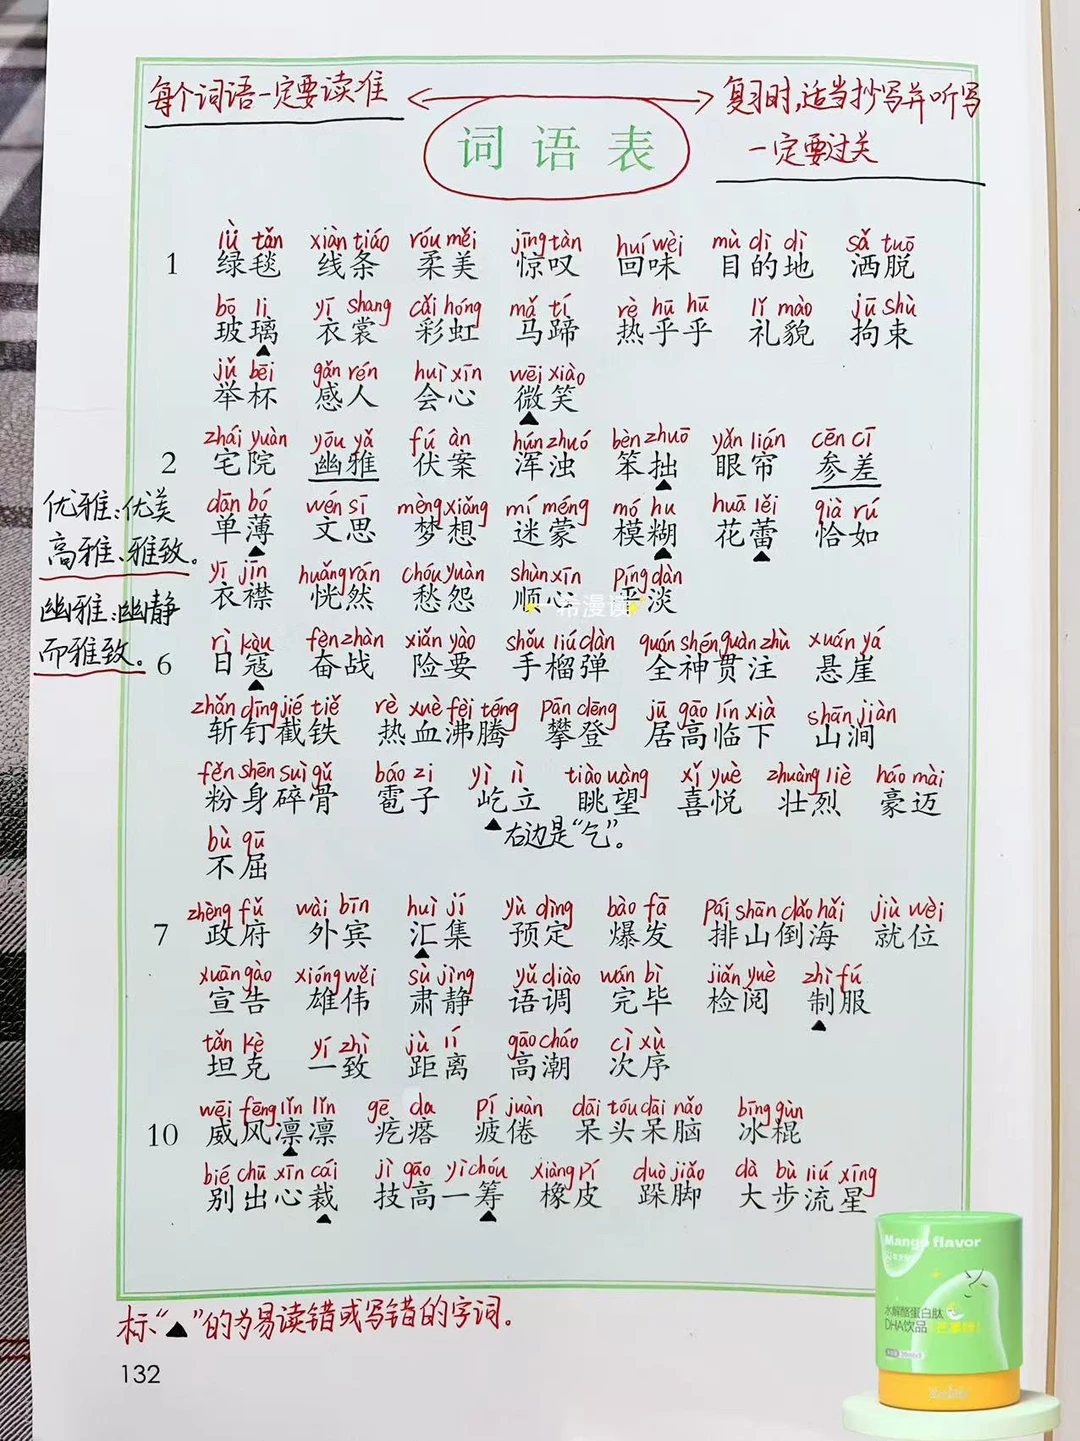 每个词语一定要读准
复习时,适当抄写并听写
一定要过关
词语表
lǜ tǎn xiàn tiáo róu měi jīng tàn huí wèi mù dì dì sǎ tuō
1 绿毯 线条 柔美 惊叹 回味 目的地 洒脱
bō li yī shang cǎi hóng mǎ tí rè hū hū lǐ mào jū shù
玻璃 衣裳 彩虹 马蹄 热乎乎 礼貌 拘束
jǔ bēi gǎn rén huì xīn wēi xiào
举杯 感人 会心 微笑
zhái yuàn yōu yǎ fú àn hún zhuó bèn zhuō yǎn lián cēn cī
2 宅院 幽雅 伏案 浑浊 笨拙 眼帘 参差
dān bó wén sī mèng xiǎng mí méng mó hu huā lěi qià rú
单薄 文思 梦想 迷蒙 模糊 花蕾 恰如
优雅:优美
高雅、雅致。
yī jīn huǎng rán chóu yuàn shùn xīn píng dàn
衣襟 恍然 愁怨 顺心 平淡
一希漫读
幽雅:幽静
而雅致。
rì kòu fèn zhàn xiǎn yào shǒu liú dàn quán shén guàn zhù xuán yá
6 日寇 奋战 险要 手榴弹 全神贯注 悬崖
zhǎn dīng jié tiě rè xuè fèi téng pān dēng jū gāo lín xià shān jiàn
斩钉截铁 热血沸腾 攀登 居高临下 山涧
fěn shēn suì gǔ báo zi yì lì tiào wàng xǐ yuè zhuàng liè háo mài
粉身碎骨 雹子 屹立 眺望 喜悦 壮烈 豪迈
▲右边是“乞”。
bù qū
不屈
zhèng fǔ wài bīn huì jí yù dìng bào fā pái shān dǎo hǎi jiù wèi
7 政府 外宾 汇集 预定 爆发 排山倒海 就位
xuān gào xióng wěi sù jìng yǔ diào wán bì jiǎn yuè zhì fú
宣告 雄伟 肃静 语调 完毕 检阅 制服
tǎn kè yí zhì jù lí gāo cháo cì xù
坦克 一致 距离 高潮 次序
wēi fēng lǐn lǐn gē da pí juàn dāi tóu dāi nǎo bīng gùn
10 威风凛凛 疙瘩 疲倦 呆头呆脑 冰棍
bié chū xīn cái jì gāo yì chóu xiàng pí duò jiǎo dà bù liú xīng
别出心裁 技高一筹 橡皮 跺脚 大步流星
标“▲”的为易读错或写错的字词。
132
Mango flavor
水解酪蛋白肽
DHA饮品